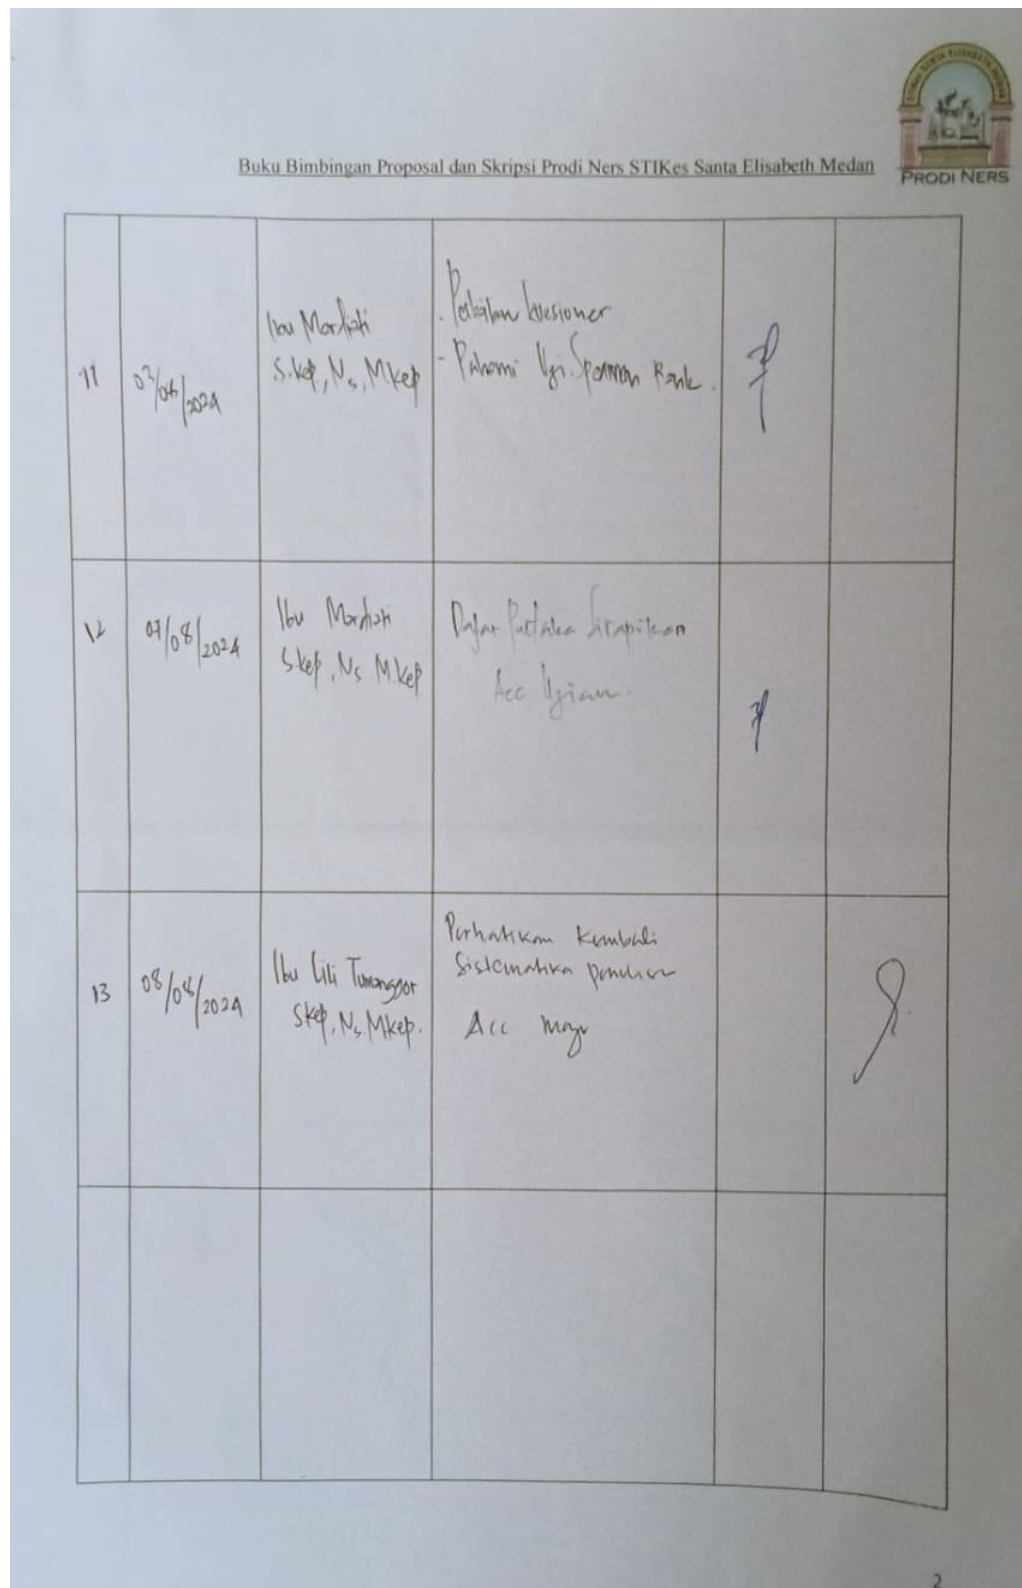 PRODI NERS
Buku Bimbingan Proposal dan Skripsi Prodi Ners STIKes Santa Elisabeth Medan
11
03/06/2024
Ibu Mardiati
S.kep, Ns, Mkep
kuesioner
- Pahami Uji Spearman Rank.
12
07/08/2024
Ibu Mardiati
Skep, Ns M.kep
Dafar Pustaka dirapikan
Acc Ujian.
13
08/08/2024
Ibu Lili Tumanggor
Skep, Ns. Mkep.
Perhatikan Kembali
Sistematika penulisan
Acc maju
2